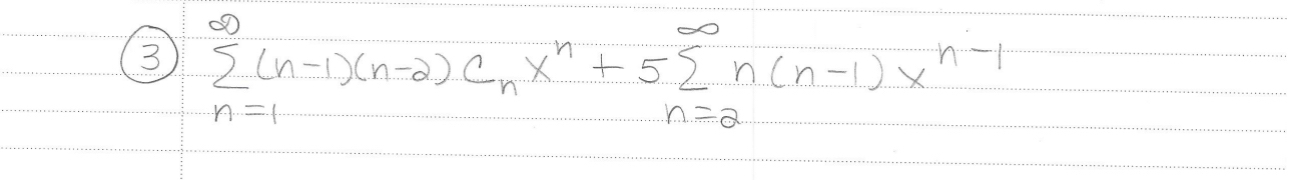 ③ ∞∑n=1 (n-1)(n-2) Cₙ xⁿ + 5 ∞∑n=2 n(n-1) xⁿ⁻¹